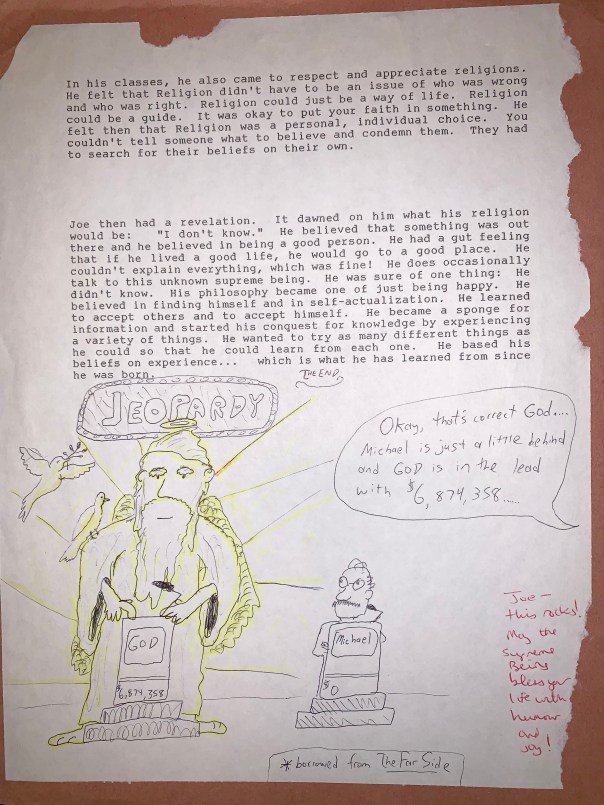 In his classes, he also came to respect and appreciate religions.
He felt that Religion didn't have to be an issue of who was wrong
and who was right. Religion could just be a way of life. Religion
could be a guide. It was okay to put your faith in something. He
felt then that Religion was a personal, individual choice. You
couldn't tell someone what to believe and condemn them. They had
to search for their beliefs on their own.
Joe then had a revelation. It dawned on him what his religion
would be: "I don't know." He believed that something was out
there and he believed in being a good person. He had a gut feeling
that if he lived a good life, he would go to a good place. He
couldn't explain everything, which was fine! He does occasionally
talk to this unknown supreme being. He was sure of one thing: He
didn't know. His philosophy became one of just being happy. He
believed in finding himself and in self-actualization. He learned
to accept others and to accept himself. He became a sponge for
information and started his conquest for knowledge by experiencing
a variety of things. He wanted to try as many different things as
he could so that he could learn from each one. He based his
beliefs on experience... which is what he has learned from since
he was born.
THE END
JEOPARDY
Okay, that's correct God....
Michael is just a little behind
and GOD is in the lead
with $6,874,358.....
GOD
$6,874,358
Michael
$0
Joe—
this rocks!
May the
Supreme
Being
bless your
life with
humor
and
joy!
* borrowed from The Far Side